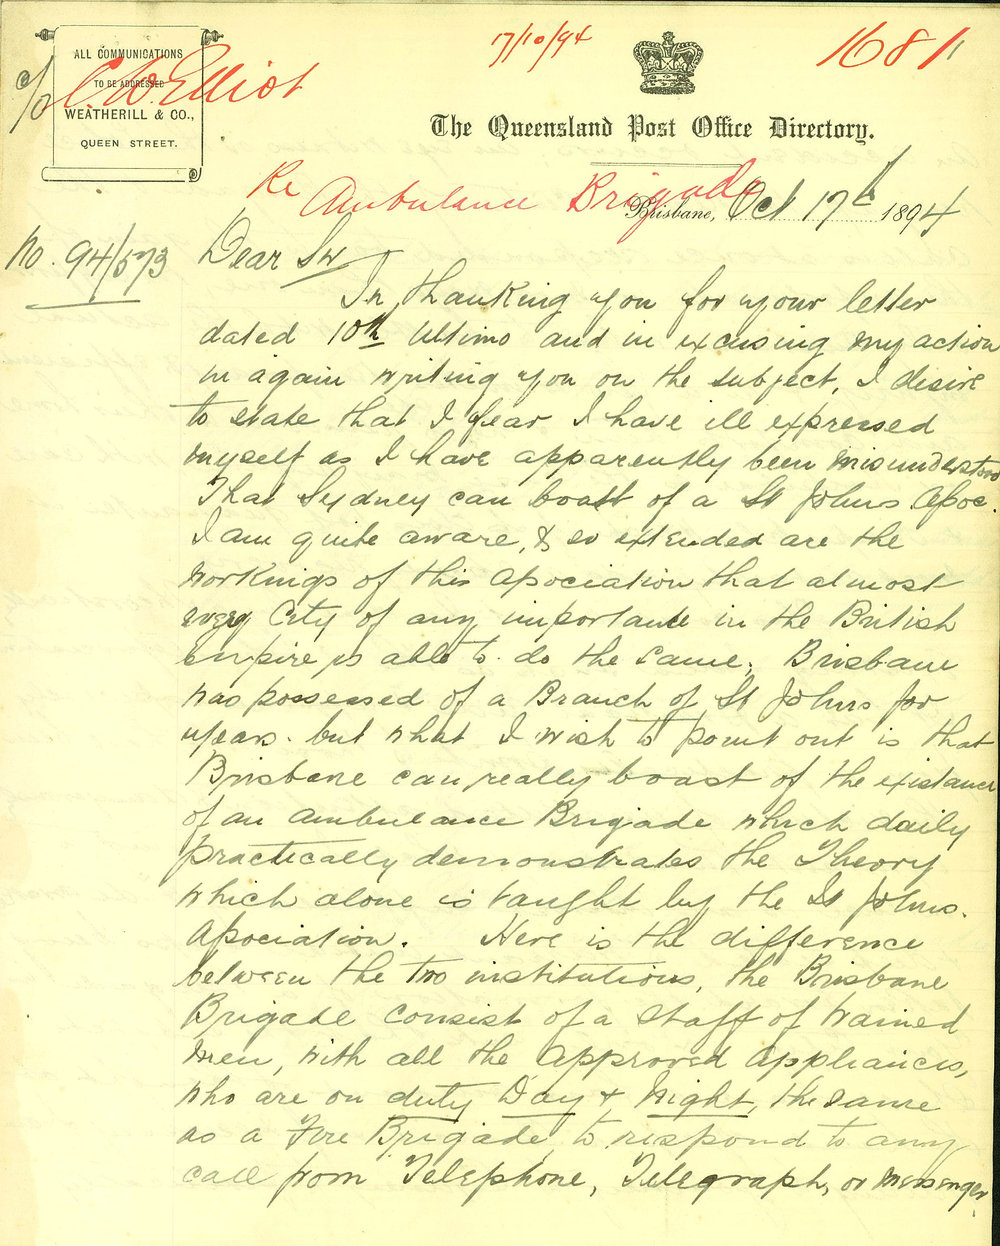 ALL COMMUNICATIONS
TO BE ADDRESSED
WEATHERILL & CO.,
QUEEN STREET.
c/o C. W. Elliot
17/10/94
1681
The Queensland Post Office Directory.
Re Ambulance Brigade
Brisbane, Oct 17th 1894
No. 94/573
Dear Sir
In thanking you for your letter
dated 10th Ultimo and in excusing my action
in again writing you on the subject, I desire
to state that I fear I have ill expressed
myself as I have apparently been misunderstood
That Sydney can boast of a St Johns Assoc.
I am quite aware, & so extended are the
workings of this Association that almost
every City of any importance in the British
empire is able to do the same; Brisbane
was possessed of a Branch of St Johns for
years. but what I wish to point out is that
Brisbane can really boast of the existance
of an Ambulance Brigade which daily
practically demonstrates the Theory
which alone is taught by the St Johns.
Association. Here is the difference
between the two institutions, the Brisbane
Brigade consist of a staff of trained
men, with all the approved appliances,
who are on duty Day & Night, the same
as a Fire Brigade to respond to any
call from Telephone, Telegraph, or messenger